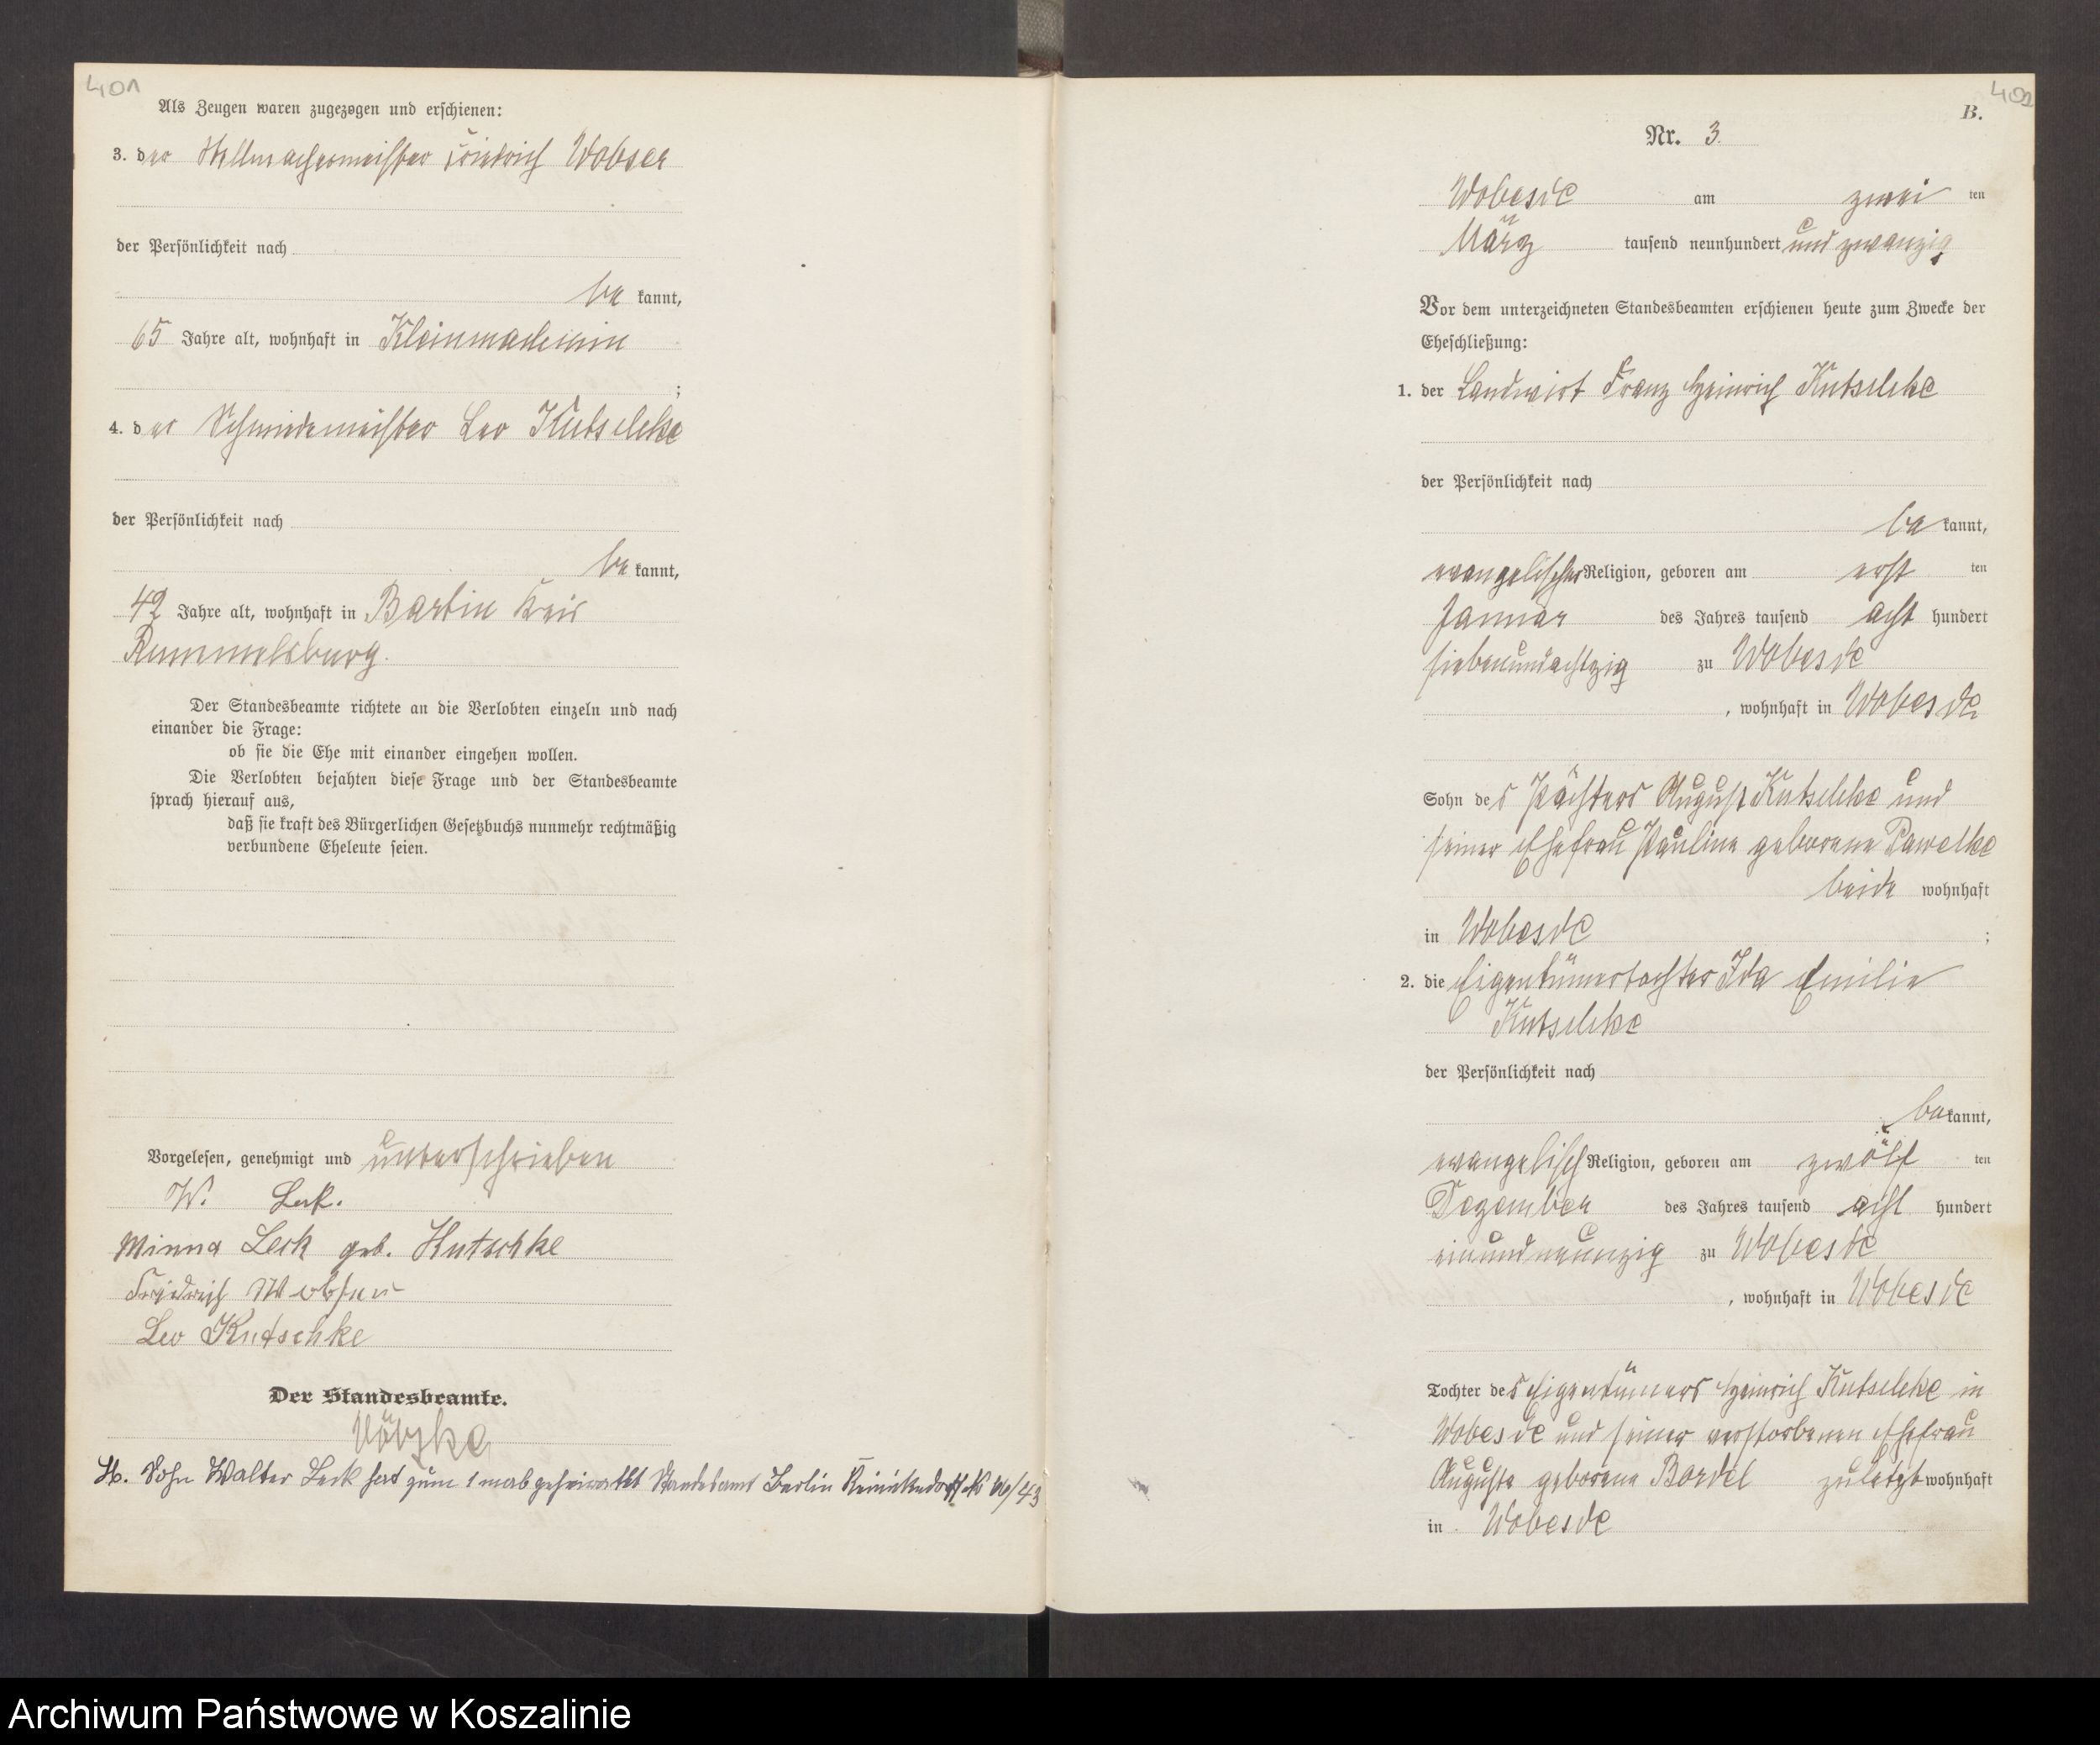 401
Als Zeugen waren zugezogen und erschienen:
3. der Stellmachermeister Friedrich Wobser
der Persönlichkeit nach
be kannt,
65 Jahre alt, wohnhaft in Kleinmachmin
;
4. der Schmiedemeister Leo Kutschke
der Persönlichkeit nach
be kannt,
42 Jahre alt, wohnhaft in Bartin Kreis
Rummelsburg.
Der Standesbeamte richtete an die Verlobten einzeln und nach
einander die Frage:
ob sie die Ehe mit einander eingehen wollen.
Die Verlobten bejahten diese Frage und der Standesbeamte
sprach hierauf aus,
daß sie kraft des Bürgerlichen Gesetzbuchs nunmehr rechtmäßig
verbundene Eheleute seien.
Vorgelesen, genehmigt und unterschrieben
W. Leck.
Minna Leck geb. Kutschke
Friedrich Wobser
Leo Kutschke
Der Standesbeamte.
Sohn Walter Leck hat zum 1 mal geheiratet Standesamt Berlin Reinickendorf
402
B.
Nr. 3.
Wobesde am zwei ten
März tausend neunhundert und zwanzig
Vor dem unterzeichneten Standesbeamten erschienen heute zum Zwecke der
Eheschließung:
1. der Landwirt Franz Heinrich Kutschke
der Persönlichkeit nach
be kannt,
evangelischer Religion, geboren am erst ten
Januar des Jahres tausend acht hundert
siebenundachtzig zu Wobesde
, wohnhaft in Wobesde
Sohn des Pächters August Kutschke und
seiner Ehefrau Pauline geborene Pawelke
beide wohnhaft
in Wobesde ;
2. die Eigentümertochter Ida Emilie
Kutschke
der Persönlichkeit nach
be kannt,
evangelisch Religion, geboren am zwölf ten
Dezember des Jahres tausend acht hundert
einundneunzig zu Wobesde
, wohnhaft in Wobesde
Tochter des Eigentümers Heinrich Kutschke in
Wobesde und seiner verstorbenen Ehefrau
Auguste geborene Bardel zuletzt wohnhaft
in Wobesde
Archiwum Państwowe w Koszalinie